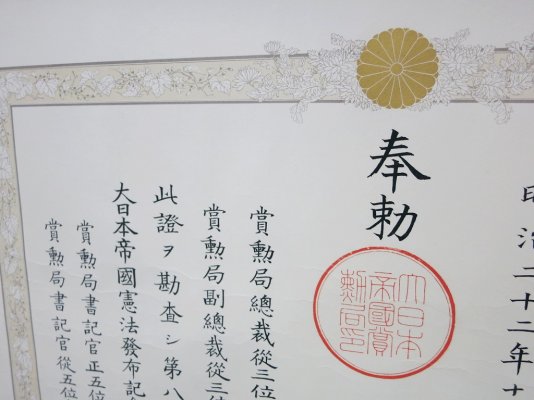 明治二十二年十
奉勅
大日本
帝國賞
勲局印
賞勲局總裁從三位
賞勲局副總裁從三位
此證ヲ勘査シ第八
大日本帝國憲法發布記
賞勲局書記官正五位
賞勲局書記官從五位